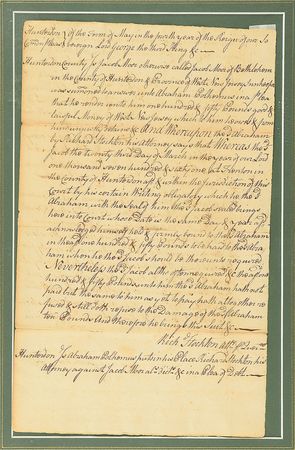 Hunterdon of the Term of May in the fourth year of the Reign of our So
Common Pleas vereign Lord George the third King &c —
Hunterdon County Ss Jacob Moor otherwise called Jacob Moor of Bethlehem
in the County of Hunterdon & Province of West New Jersey Innkeeper
was summoned to answer unto Abraham Polhemus in a Plea
that he render unto him one hundred & fifty Pounds good &
lawful Money of West New Jersey which to him he owes & from
him unjustly detains &c And Whereupon the sd Abraham
by Richard Stockton his Attorney says that Whereas the sd
Jacob the twenty third Day of March in the year of our Lord
one thousand seven hundred & sixty one at Trenton in
the County of Hunterdon afd & within the Jurisdiction of this
Court by his certain Writing obligatory which he the sd
Abraham with the Seal of him the sd Jacob sealed brings
here into Court whose Date is the same Day & year afd
acknowledged himself held & firmly bound to the sd Abraham
in the afd one hundred & fifty Pounds to be paid to the sd Abra
ham when he the sd Jacob should be thereunto required
Nevertheless the sd Jacob altho' often required &c the afd one
hundred & fifty Pounds unto him the sd Abraham hath not
paid but the same to him as yet to pay hath altogether re
fused & still doth refuse to the Damage of the sd Abraham
ten Pounds And therefore he brings this Suit &c —
Rich Stockton
Hunterdon Ss Abraham Polhemus puts in his Place Richard Stockton his
Attorney against Jacob Moor in a Plea of Debt. —